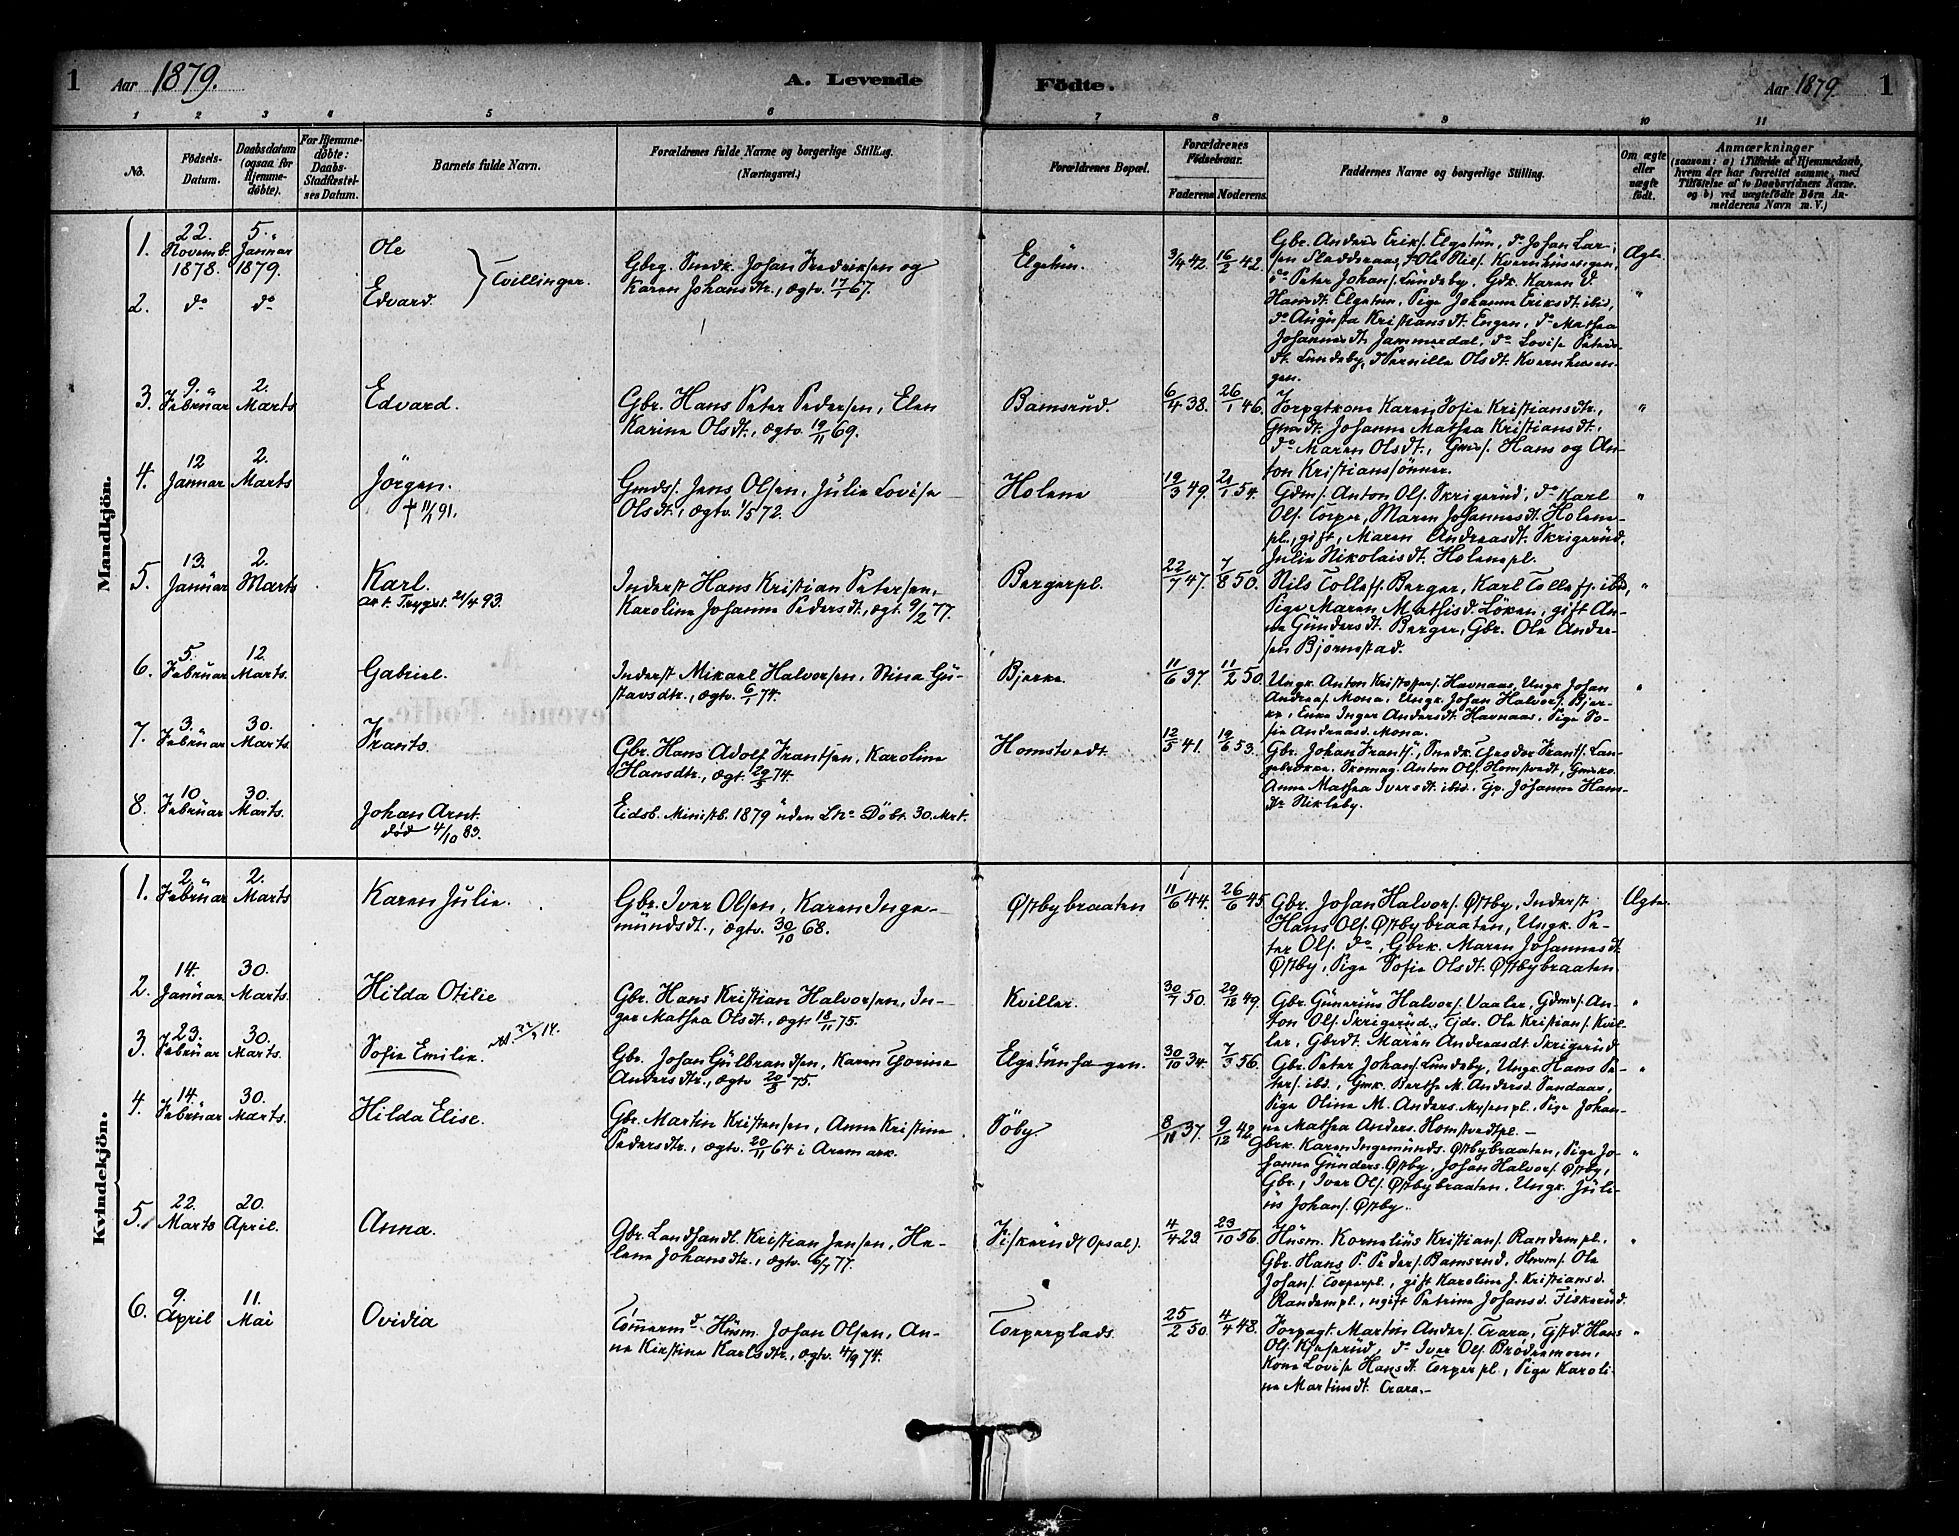 1 Aar 1879. A. Levende Fødte. Aar 1879. 1
1 2 3 4 5 6 7 8 9 10 11
No. Fødsels-Datum. Daabsdatum (ogsaa for Hjemmedøbte). For Hjemmedøbte: Daabs-Stadfæstelses Datum. Barnets fulde Navn. Forældrenes fulde Navne og borgerlige Stilling. (Næringsvei.)
Forældrenes Bopæl. Forældrenes Fødselsaar. Faderens Moderens. Faddernes Navne og borgerlige Stilling. Om ægte eller uægte født. Anmærkninger (saasom: a) i Tilfælde af Hjemmedaab, hvem der har forrettet samme, med Tilføielse af to Daabsvidners Navne. og b) ved uægtefødte Børn Anmelderens Navn m. V.)
Mandkjön.
1. 22. Novemb. 1878. 5. Januar 1879. Ole
2. do do Edvard. Tvillinger.
Gbrg. Smdk. Johan Fredriksen og
Karen Johansdtr., ægtv. 67.
Elgetün. 3/4 42. 16/2 42.
Gbr. Anders Eriks. Elgetün, do Johan Lar-
sen Sladderaas, do Ole Nils. Kvernhüsengen,
do Peter Johans. Lündeby, Gdk. Karen
Hansdt. Elgetün, Pige Johanne Eriksdt. ibid,
do Augusta Kristiansdt. Engen, do Mathea
Johannesdt. Jammerdal, do Lovise Peters-
dt. Lundeby, Pernille Olsdt. Kvernhusen-
gen.
Ægte.
3. 9. Februar 2. Marts Edvard.
Gbr. Hans Peter Pedersen, Elen
Karine Olsdt., ægtv. 19/11 69.
Bamsrud. 6/4 38. 26/1 46.
Forpgtkone Karen Sofie Kristiansdtr.,
Johanne Mathea Kristiansdt.,
do Maren Olsdt., Hans og An-
ton Kristianssönner.
4. 12 Januar 2. Marts Jörgen.
† 91.
Gmds. Jens Olsen, Julie Lovise
Olsdt., ægtv. 1/5 72.
Holene 19/3 49. 54.
Gdms. Anton Ols. Skrigerüd, do Karl
Ols. Torper, Maren Johannesdt. Holene-
pl., gift, Maren Andreasdt. Skrigerüd,
Julie Nikolaisdt. Holenepl.
5. 13. Januar 2. Marts Karl.
att. Trygst. 93.
Inderst Hans Kristian Petersen,
Karoline Johanne Pedersdt., ægt. 9/2 77.
Bergerpl. 22/7 47. 7/8 50.
Nils Tollefs. Berger, Karl Tollefs. ibid,
Pige Maren Mathisd. Löken, gift An-
ne Gündersdt. Berger, Gbr. Ole Ander-
sen Bjørnestad.
6. 5. Februar 12. Marts. Gabriel.
Inderst Mikael Halvorsen, Stina Gü-
stavsdtr., ægtv. 6/1 74.
Bjerke. 11/6 37. 11/2 50.
Ungk. Anton Kristoffers. Havnaas, Ungk. Johan
Andreas. Mona, Ungk. Johan Halvors. Bjer-
ke, Enke Inger Andersdt. Havnaas, Pige So-
fie Andreasd. Mona.
7. 3. Februar 30. Marts. Frants.
Gbr. Hans Adolf Frantsen, Karoline
Hansdtr., ægt. 74.
Homstvedt. 12/5 41. 19/6 53.
Gbr. Johan Frants., Smdk. Theodor Frants. Lan-
gebrække, Skomag. Anton Ols. Homstvedt,
Anne Mathea Iversdt. ibid., Johanne Hans-
dr. Nikleby.
8. 10. Februar 30. Marts. Johan Arnt.
død 4/10 83.
Eidsb. Ministb. 1879 uden Döbt. 30. Mrt.
Kvindekjön.
1. 2. Februar 2. Marts Karen Julie.
Gbr. Iver Olsen, Karen Inge-
mündsdt., ægtv. 30/10 68.
Østbybraaten 11/6 44. 26/6 45.
Gbr. Johan Halvors. Østby, Inderst
Hans Ols. Østbybraaten, Ungk. Pe-
ter Ols. do, Gbrk. Maren Johannesdt.
Østby, Pige Sofie Olsdt. Østbybraaten
Ægte.
2. 14. Januar 30. Marts. Hilda Otilie
Gbr. Hans Kristian Halvorsen, In-
ger Mathea Olsdt., ægt. 18/11 75.
Kviller. 30/7 50. 29/12 49.
Gbr. Günerius Halvors. Vaaler, Gdms. An-
ton Ols. Skrigerüd, Tjdr. Ole Kristians. Kvil-
ler, Gbrdt. Maren Andreasdt. Skrigerüd
3. 23. Februar 30. Marts. Sofie Emilie.
Gbr. Johan Gülbrandsen, Karen Thorine
Andersdtr., ægtv. 75.
Elgetünhagen. 30/10 34. 7/3 56.
Gbr. Peter Johans. Lündeby, Ungk. Hans Pe-
ters. ibd., Gmk. Berthe M. Andersd. Sandaas,
Pige Oline M. Anders. Mysenpl., Pige Johan-
ne Mathea Anders. Homstvedtpl. —
4. 14. Februar 30. Marts. Hilda Elise.
Gbr. Martin Kristensen, Anne Kristine
Pedersdtr., ægtv. 20/11 64 i Aremark.
Söby. 8/11 37. 9/12 42.
Gbrk. Karen Ingemünds. Østbybraaten, Pige Jo-
hanne Günders. Østby, Johan Halvors. Østby,
Gbr., Iver Ols. Østbybraaten, Ungk. Jüli-
üs Johans. Østby.
5. 22. Marts 20. April. Anna.
Gbr. Landhandl. Kristian Jensen, He-
lene Johansdtr., ægtv. 77.
Fiskerüd (Opsal). 4/4 29. 23/10 56.
Hüsm. Kornelius Kristians. Randempl.
Gbr. Hans P. Peders. Bamsrud, Husm. Ole
Johans. Torperpl., gift Karoline J. Kristiansd.
Randempl., ugift Petrine Johansd. Fiskerüd.
6. 9. April 11. Mai Ovidia
Tömmermd. Hüsm. Johan Olsen, An-
ne Kirstine Karlsdtr., ægtv. 4/9 74.
Torperplads. 25/2 50. 4/4 48.
Forpagt. Martin Anders. Trara, Hans
Ols. , do Iver Ols. Brödremoen,
Kone Lovise Hansdt. Torperpl., Pige Karoli-
ne Martinsdt. Trara. —